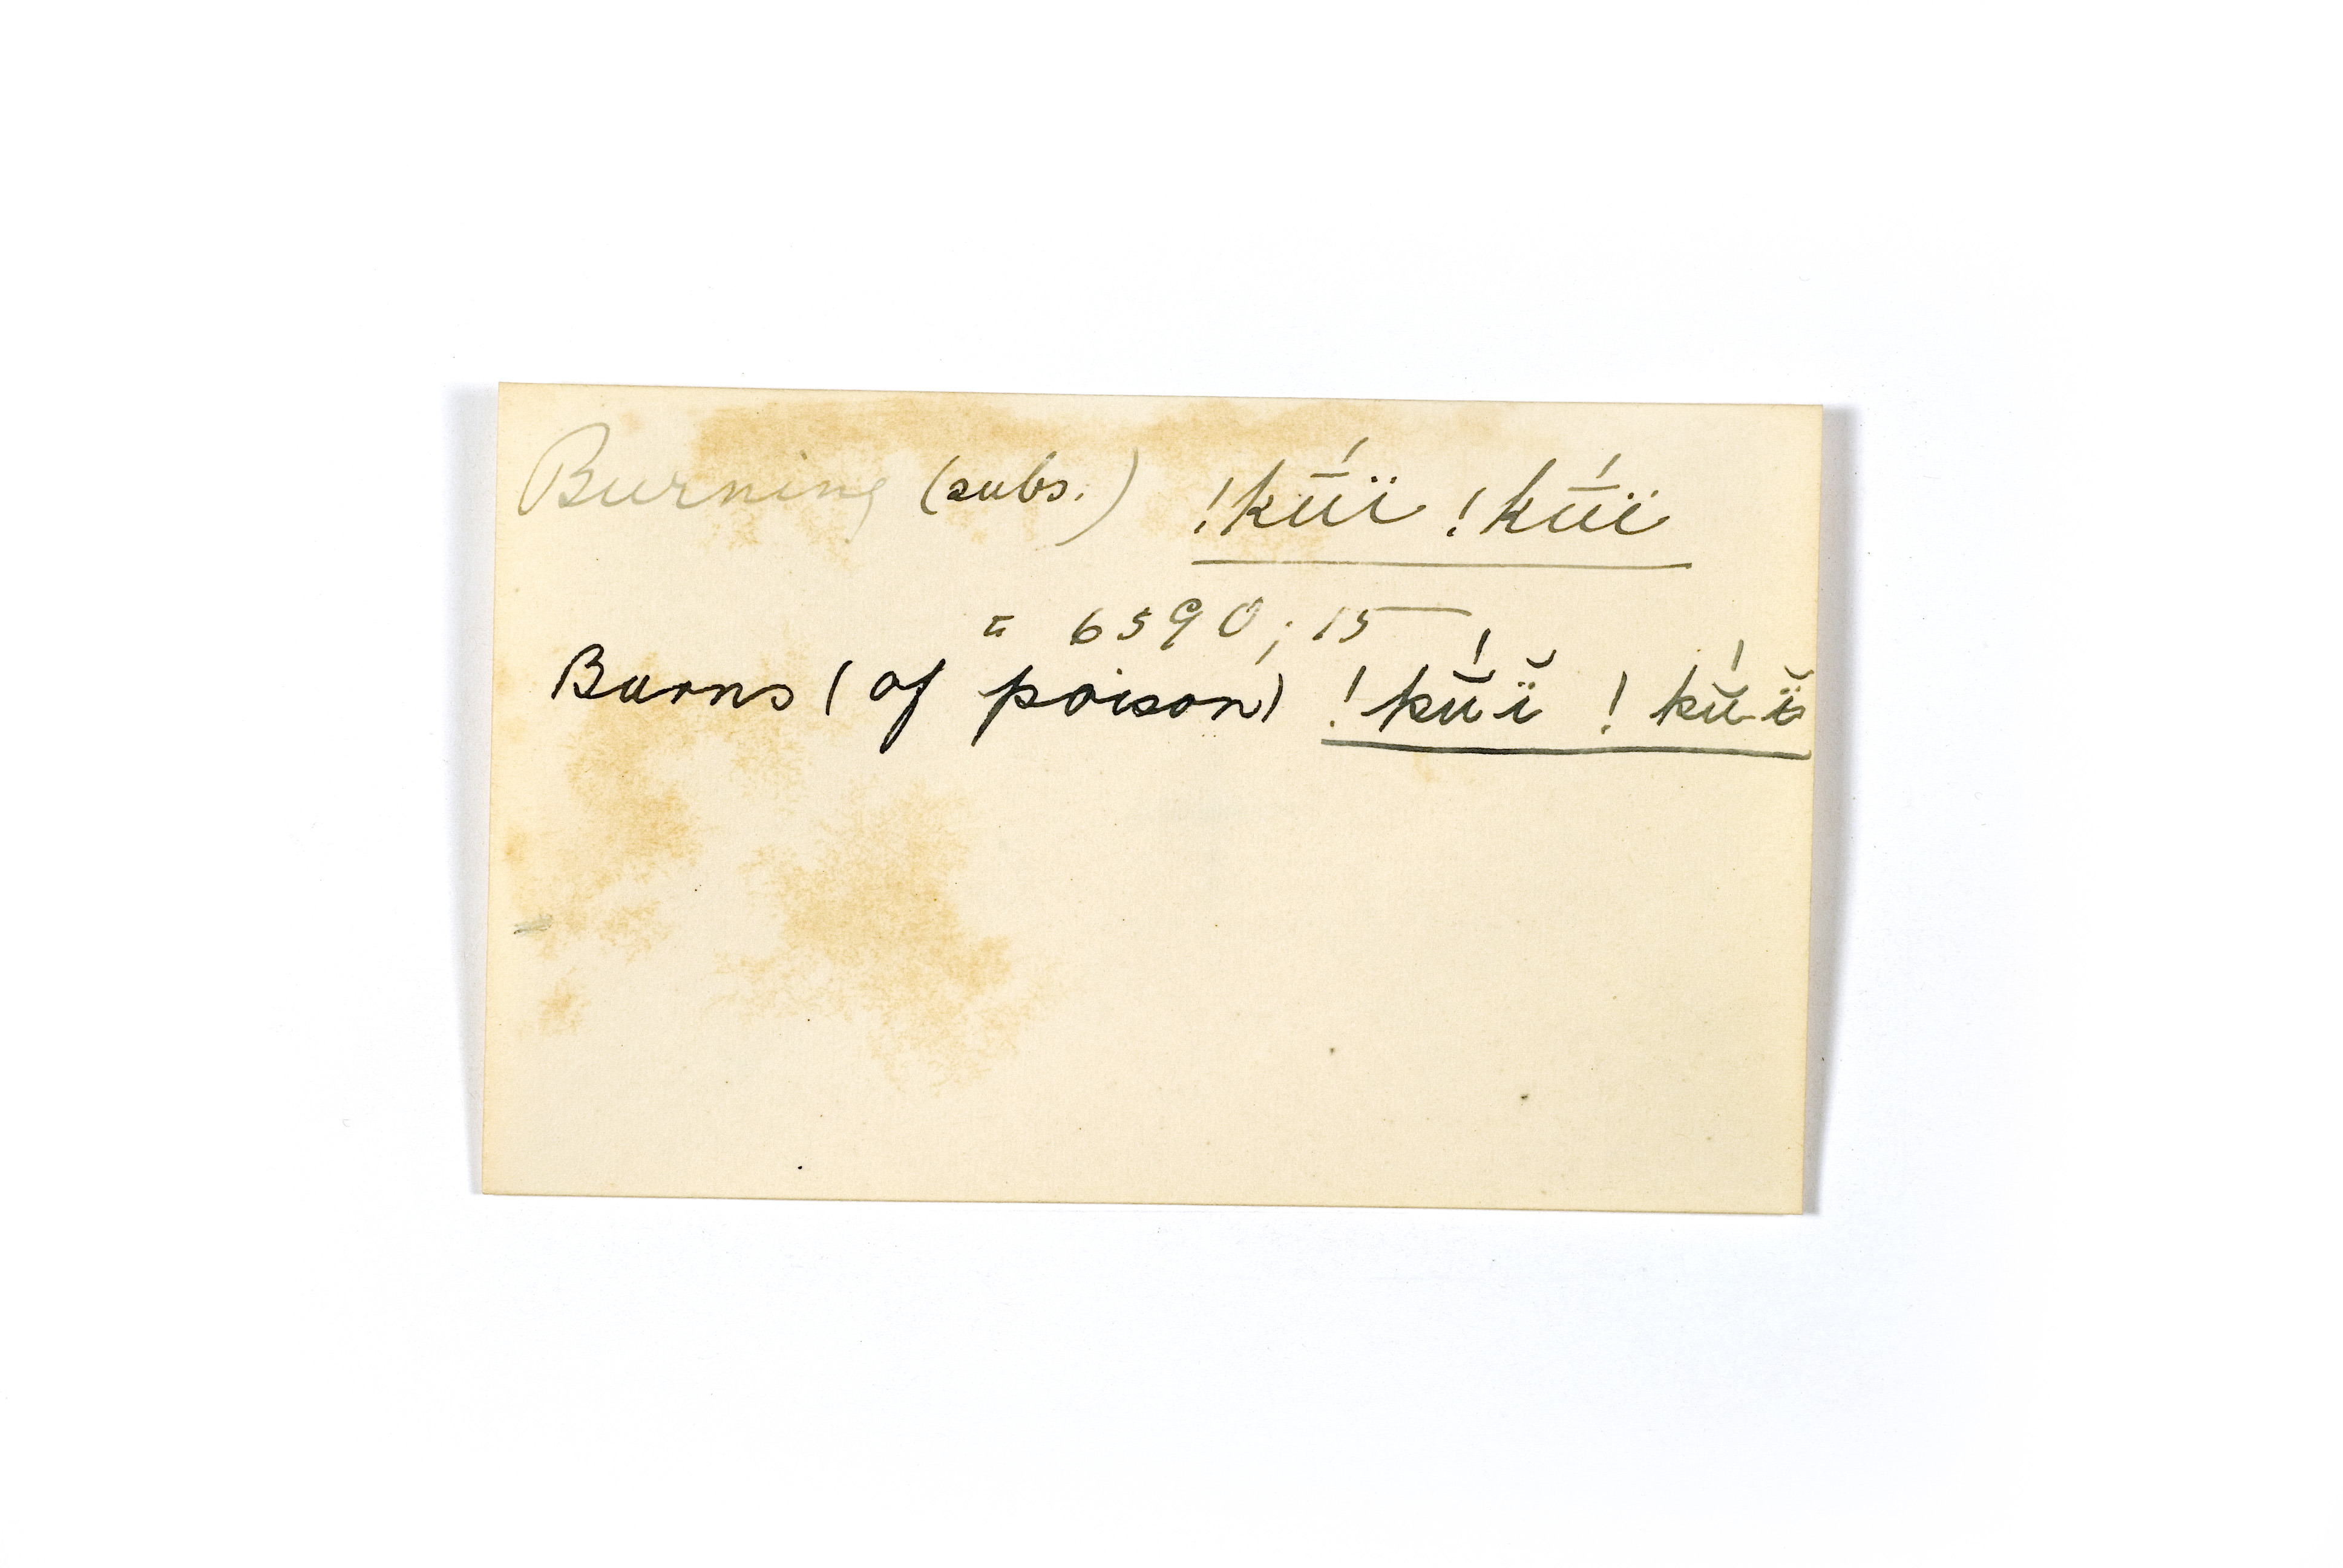 Burning (subs.) !kṹï !kṹï
= 6590; 15
Burns (of poison) !kṹï̆ !kŭ́ï̆